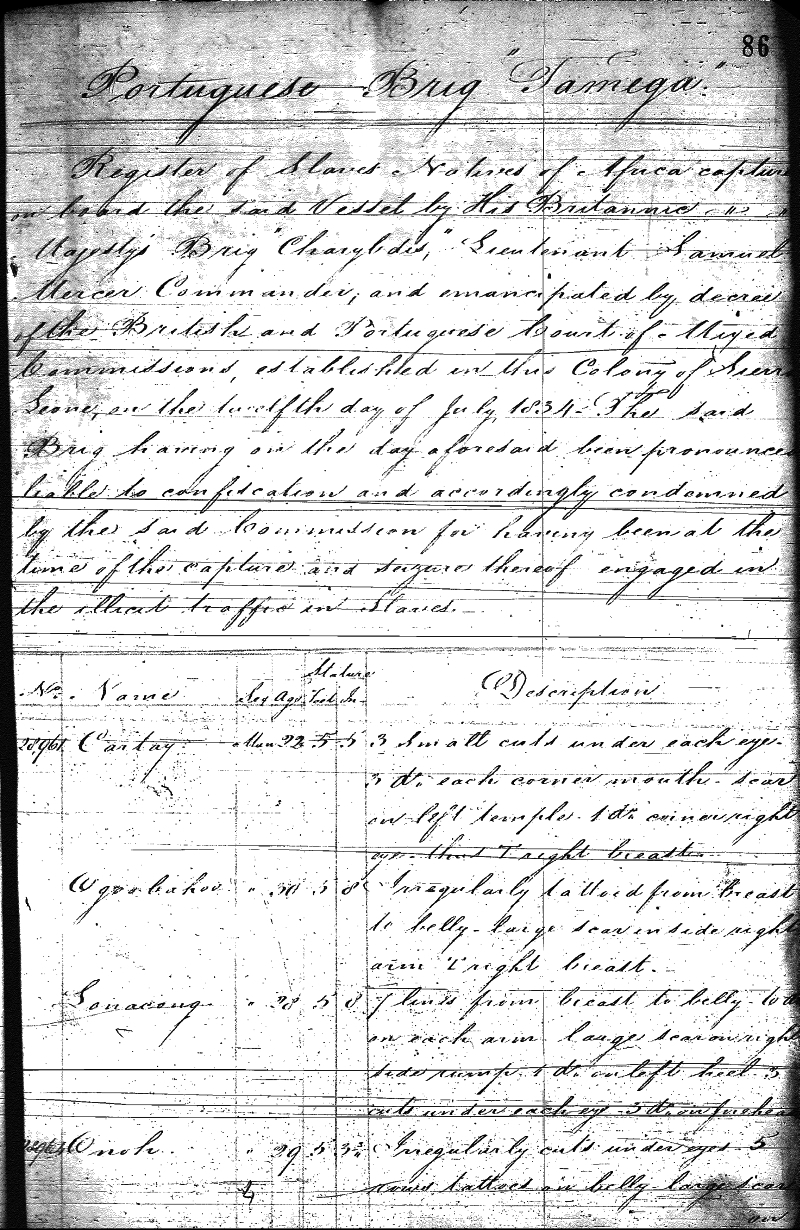 86
Portuguese Brig "Tamega."
Register of Slaves Natives of Africa capture
on board the said Vessel by His Britannic
Majesty's Brig "Charybdis," Lieutenant Samuel
Mercer Commander, and emancipated by decree
of the British and Portuguese Court of Mixed
Commissions, established in this Colony of Sierra
Leone, on the twelfth day of July 1834- The said
Brig having on the day aforesaid been pronounced
liable to confiscation and accordingly condemned
by the said Commission for having been at the
time of the capture and seizure thereof engaged in
the illicit traffic in Slaves.
Stature
No. Name Sex Age Feet In. Description
28961 Cartay Man 22 5 5 3 Small cuts under each eye-
3 do. each corner mouth- scar
on left temple- 1 do. corner right
eye- thus T right breast.
Ogoobahoo " 30 5 8 Irregularly tattoed from breast
to belly- large scar inside right
arm T right breast.
Sonacong " 28 5 8 7 lines from breast to belly-
on each arm large scar on right
side rump. 1 do. on left heel 3
cuts under each eye- 3 do. on forehead
Onoh. " 29 5 Irregularly cuts under eyes 5
rows tattoes on belly large scar
4